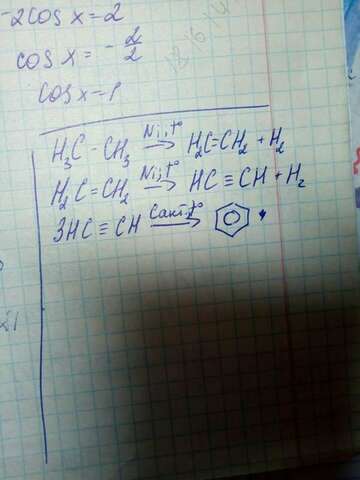 -2cos x = 2
cos x = - 2/2
cos x = -1
H₃C - CH₃ Ni, t° → H₂C=CH₂ + H₂
H₂C = CH₂ Ni, t° → HC ≡ CH + H₂
3HC ≡ CH Cакт, t° →
21